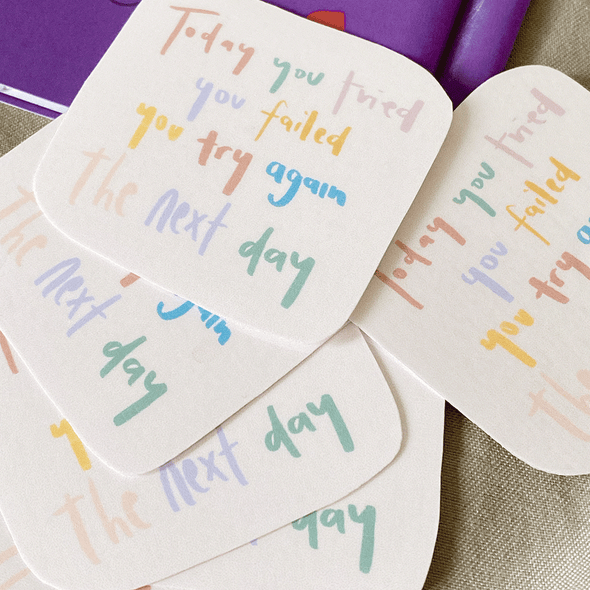 Today you tried
you failed
you try again
the next day
Today you tried
you failed
you try
the
again
the next
day
the next day
day